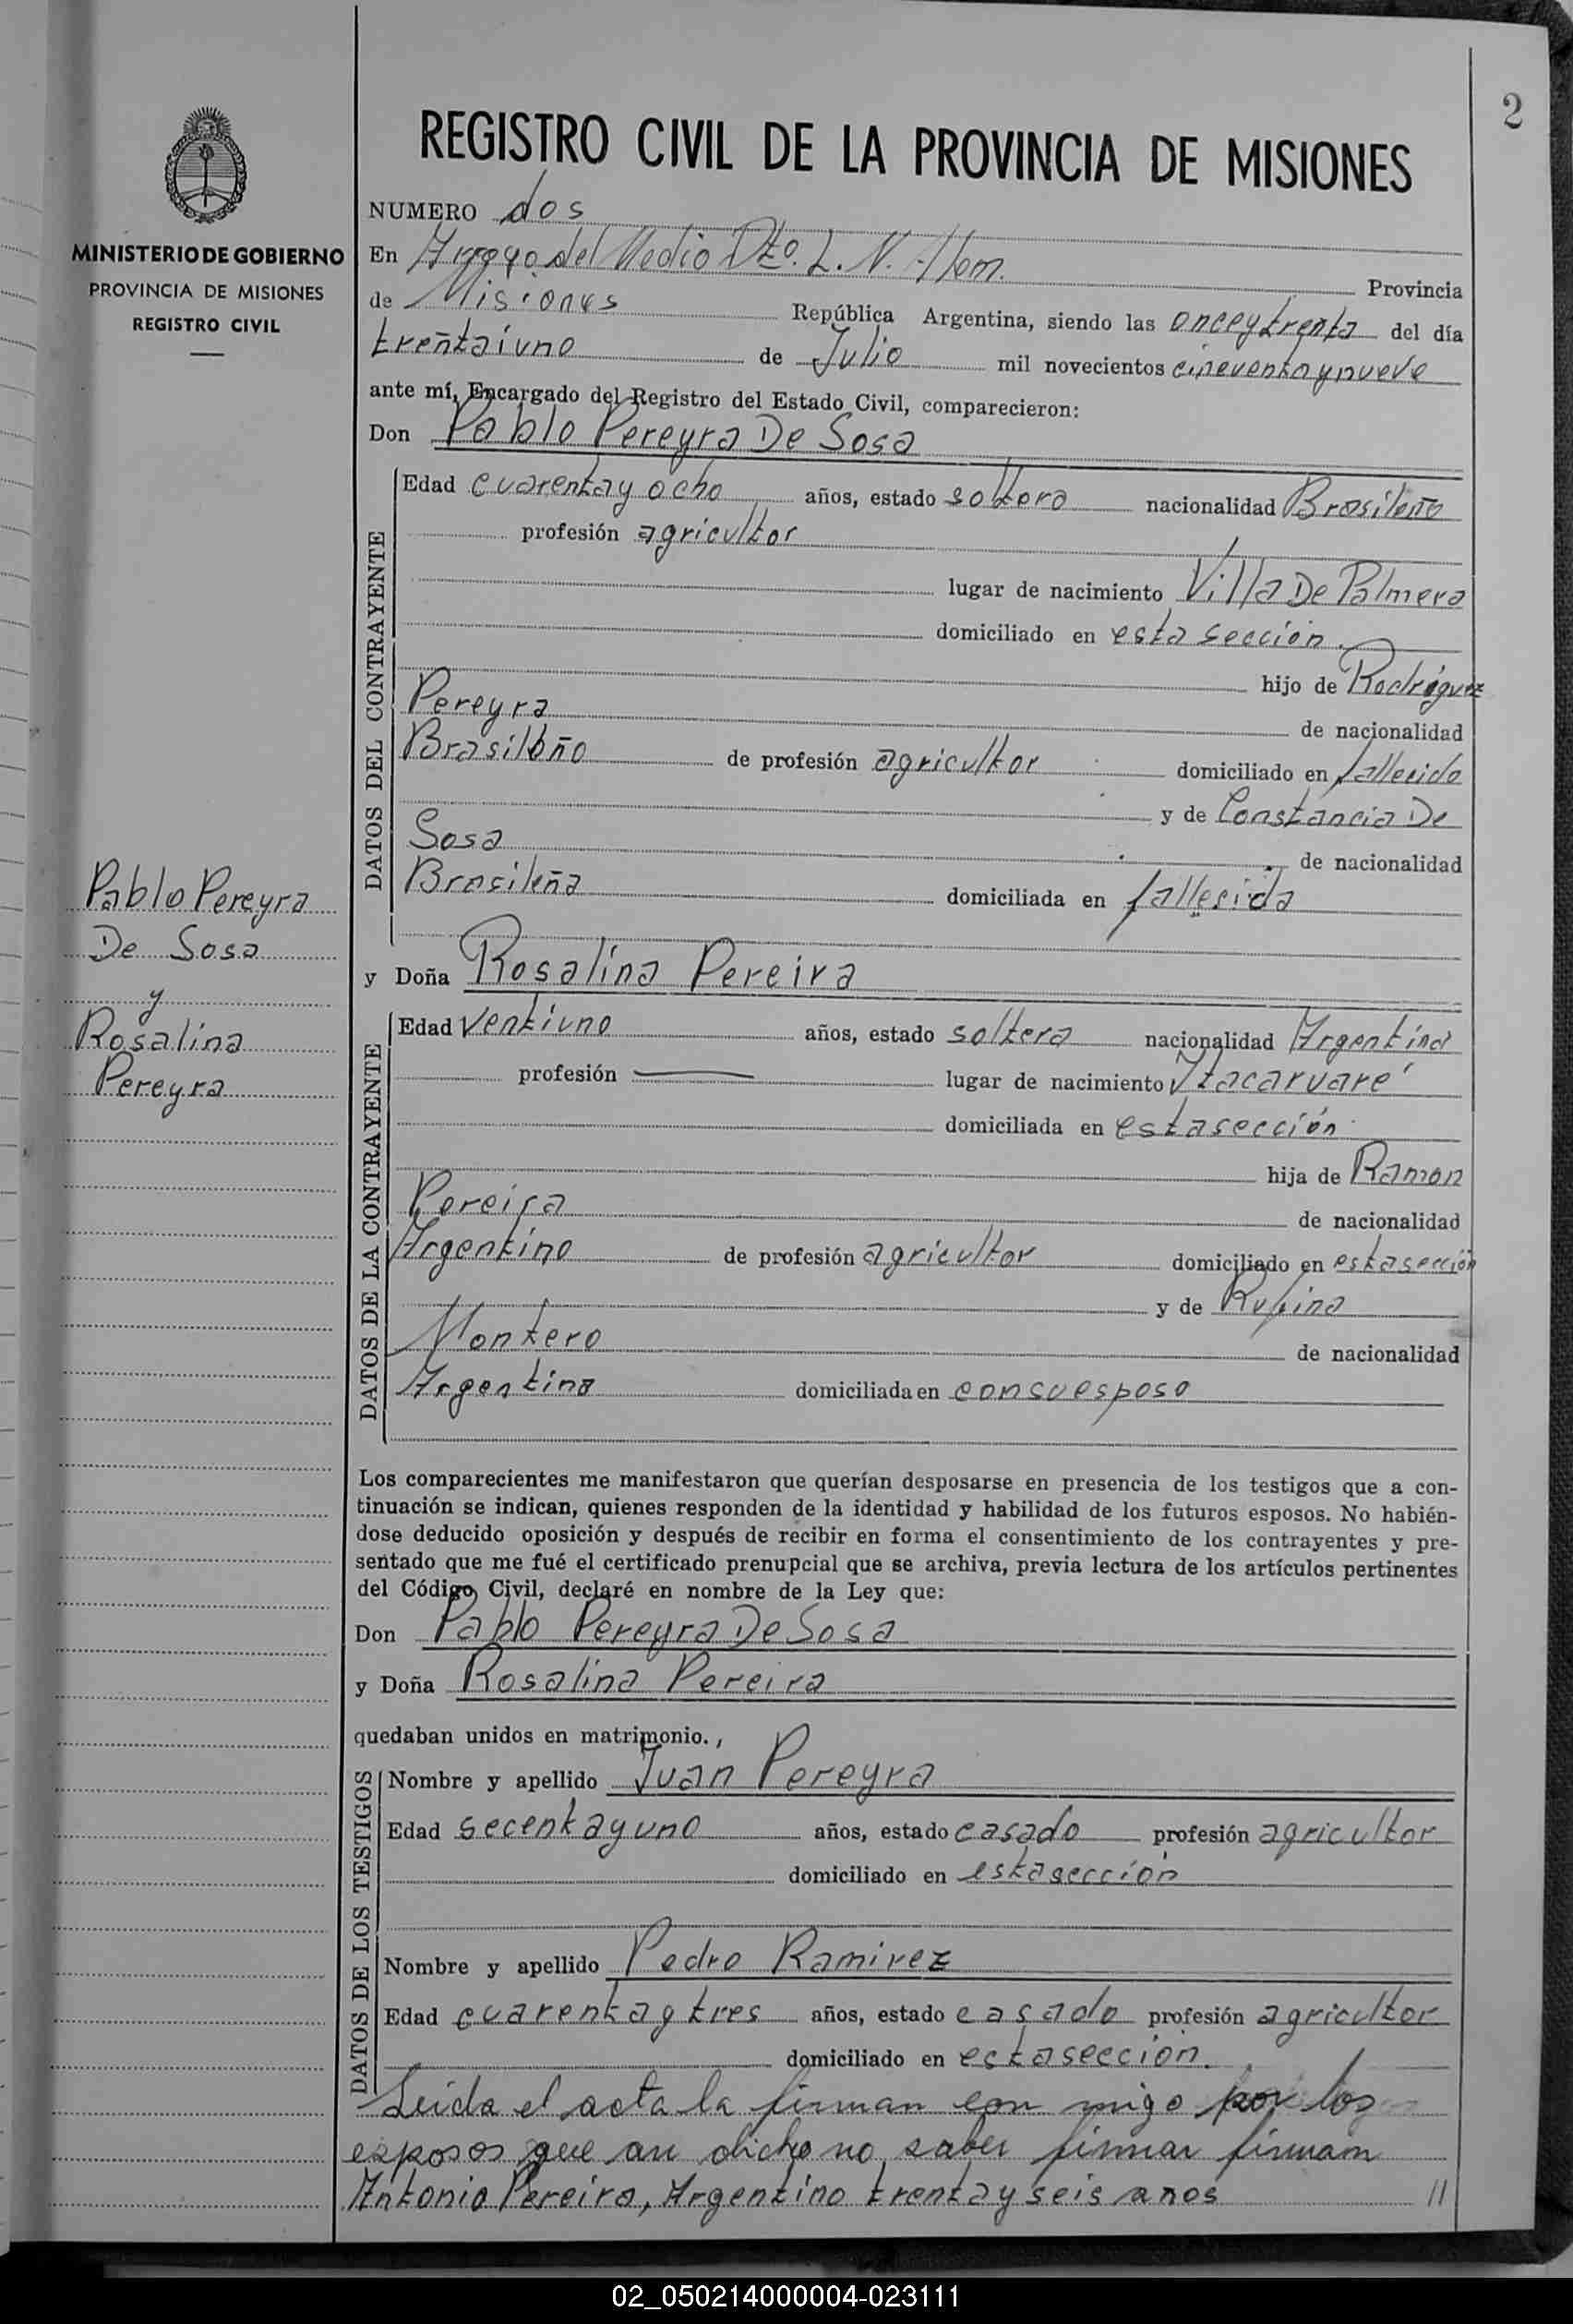 2
REGISTRO CIVIL DE LA PROVINCIA DE MISIONES
MINISTERIO DE GOBIERNO
PROVINCIA DE MISIONES
REGISTRO CIVIL
NUMERO dos
En Arroyo del Medio Dto. L. N. Alem. Provincia
de Misiones República Argentina, siendo las once y trenta del día
treñtaiuno de Julio mil novecientos cincuenta y nueve
ante mí, Encargado del Registro del Estado Civil, comparecieron:
Don Pablo Pereyra De Sosa
DATOS DEL CONTRAYENTE
Edad cuarentay ocho años, estado soltero nacionalidad Brasileño
profesión agricultor
lugar de nacimiento Villa De Palmera
domiciliado en esta sección.
hijo de Rodríguez
Pereyra de nacionalidad
Brasileño de profesión agricultor domiciliado en fallecido
y de Constancia De
Sosa de nacionalidad
Brasileña domiciliada en fallesida
Pablo Pereyra
De Sosa
y
Rosalina
Pereyra
y Doña Rosalina Pereira
DATOS DE LA CONTRAYENTE
Edad Ventiuno años, estado soltera nacionalidad Argentina
profesión lugar de nacimiento Itacaruaré
domiciliada en esta sección
hija de Ramon
Pereira de nacionalidad
Argentino de profesión agricultor domiciliado en esta sección
y de Rufina
Montero de nacionalidad
Argentina domiciliada en con su esposo
Los comparecientes me manifestaron que querían desposarse en presencia de los testigos que a con-
tinuación se indican, quienes responden de la identidad y habilidad de los futuros esposos. No habién-
dose deducido oposición y después de recibir en forma el consentimiento de los contrayentes y pre-
sentado que me fué el certificado prenupcial que se archiva, previa lectura de los artículos pertinentes
del Código Civil, declaré en nombre de la Ley que:
Don Pablo Pereyra De Sosa
y Doña Rosalina Pereira
quedaban unidos en matrimonio.,
DATOS DE LOS TESTIGOS
Nombre y apellido Juan Pereyra
Edad secentayuno años, estado casado profesión agricultor
domiciliado en esta sección
Nombre y apellido Pedro Ramirez
Edad cuarentaytres años, estado casado profesión agricultor
domiciliado en esta sección.
Leida el acta la firman con migo por los
esposos que an dicho no saber firmar firmam
Antonio Pereira, Argentino trentayseis anos //
02_050214000004-023111